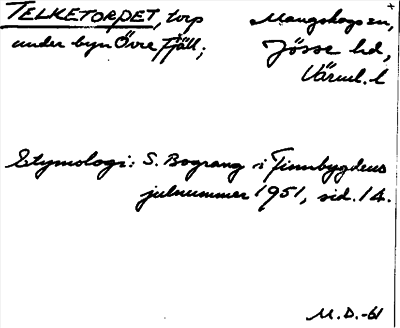 TELKETORPET, torp
under byn Övre Fjäll;
Mangskogs sn,
Jösse hd,
Värml. l
Etymologi: S. Bograng i Finnbygdens
julnummer 1951, sid. 14.
M.D.-61